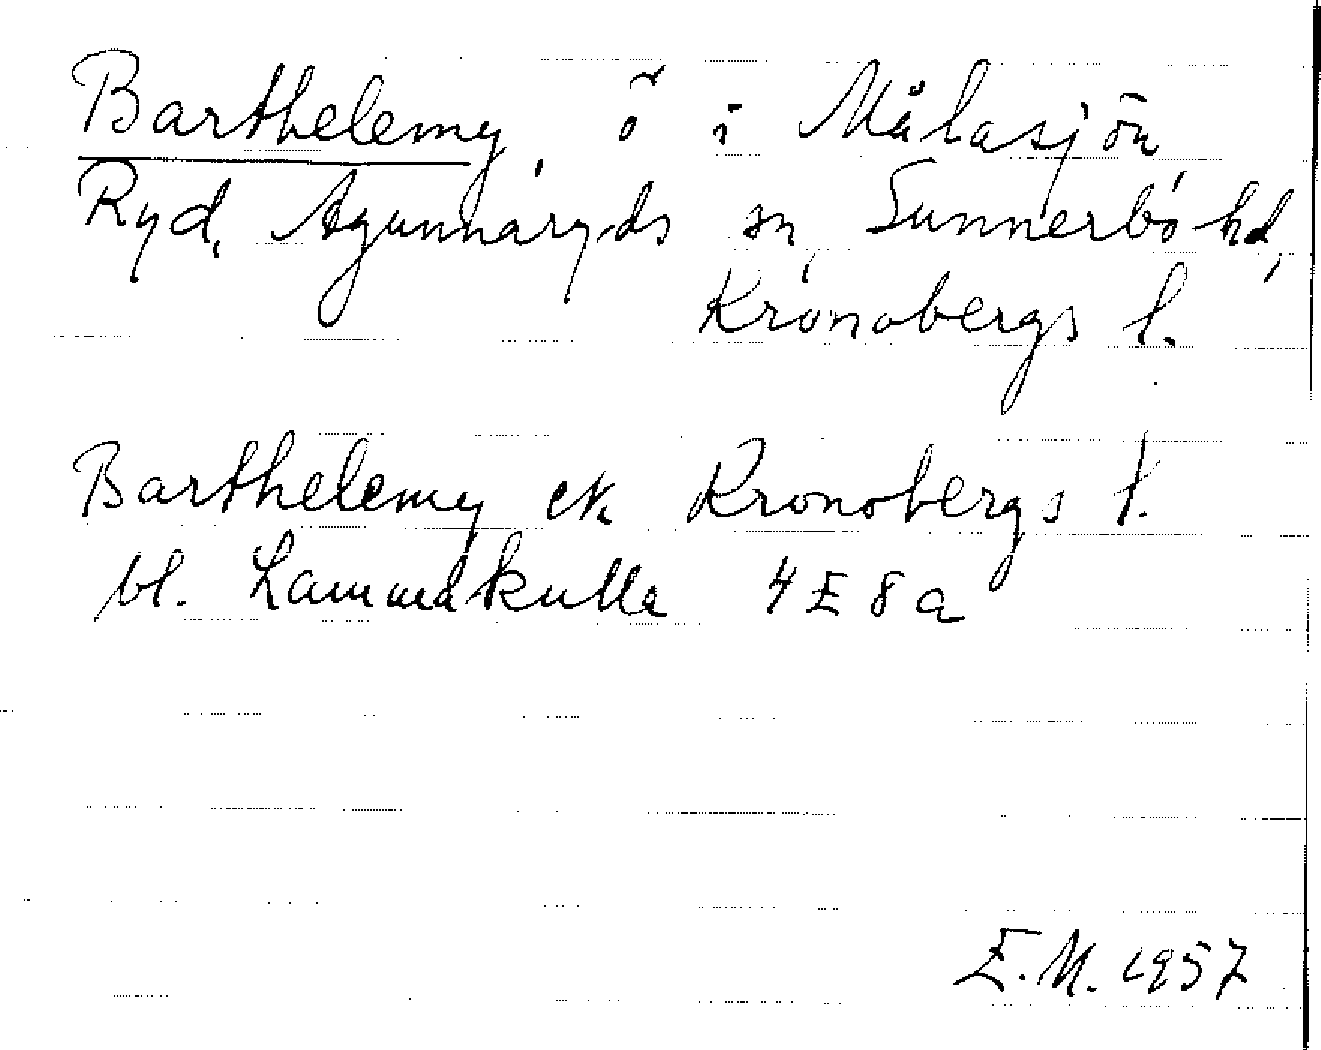 Barthelemy, ö i Målasjön
Ryd, Agunnaryds sn, Sunnerbo hd,
Kronobergs l.
Barthelemy ek Kronobergs l.
bl. Lammakulla 4 E 8 a
E.M. 1957